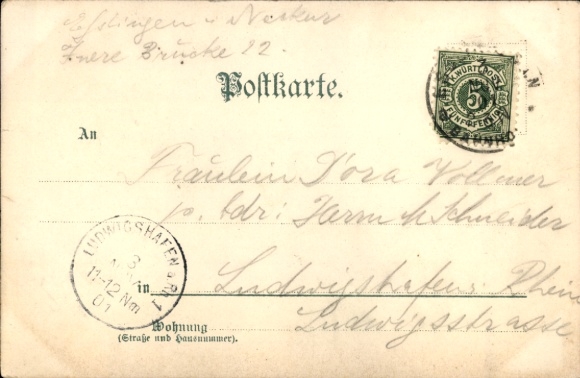 Esslingen a Neckar
Innere Brücke 22.
Postkarte.
K. WÜRTT. POST
5
FÜNF PFENNIG
BAHNHO
An
Fräulein Dora Vollmer
Adr: Herrn Schneider
LUDWIGSHAFEN a. RH. 1
3
11-12 Nm
01
in Ludwigshafen Rhein
Wohnung Ludwigsstrasse
(Straße und Hausnummer).